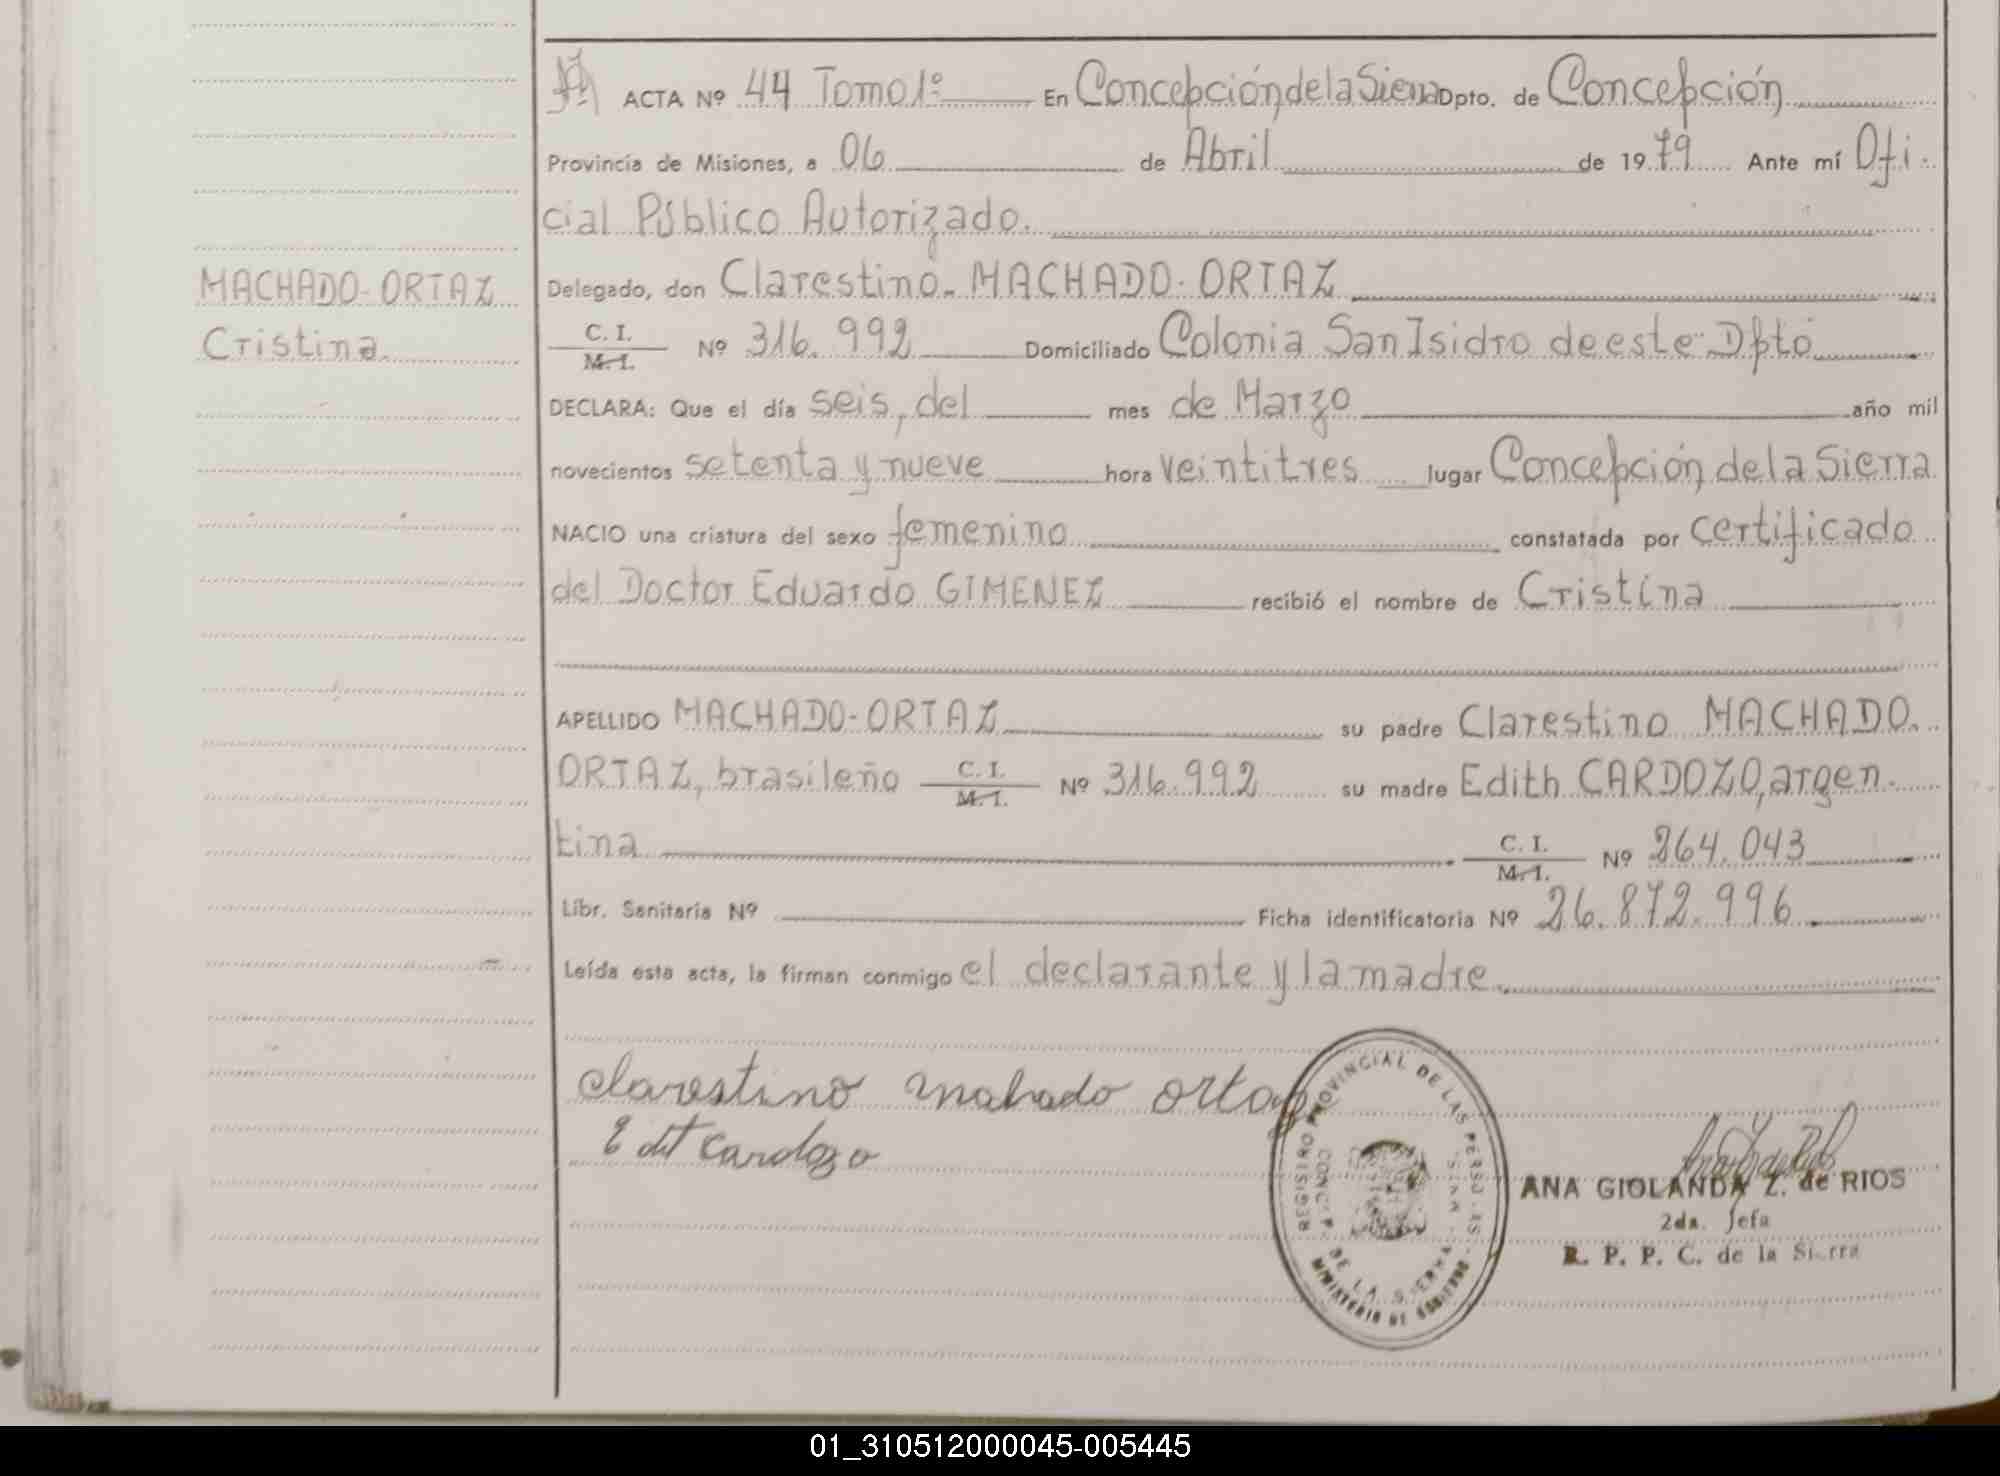 ACTA Nº 44 Tomo 1º En Concepción de la Sierra Dpto. de Concepción
Provincia de Misiones, a 06 de Abril de 1979 Ante mí Ofi-
cial Público Autorizado.
MACHADO-ORTAZ
Cristina
Delegado, don Clarestino MACHADO-ORTAZ
C. I.
M. I.
Nº 316.992 Domiciliado Colonia San Isidro de este Dpto
DECLARA: Que el día seis, del mes de Marzo año mil
novecientos setenta y nueve hora veintitres lugar Concepción de la Sierra
NACIO una criatura del sexo femenino constatada por certificado
del Doctor Eduardo GIMENEZ recibió el nombre de Cristina
APELLIDO MACHADO-ORTAZ su padre Clarestino MACHADO-
ORTAZ, brasileño C. I. M. I. Nº 316.992 su madre Edith CARDOZO, argen-
tina C. I. M. I. Nº 264.043
Libr. Sanitaria Nº Ficha identificatoria Nº 26.872.996
Leída esta acta, la firman conmigo el declarante y la madre.
clarestino mahado ortaz
Edit Cardozo
REGISTRO PROVINCIAL DE LAS PERSONAS
CONCEP. DE LA SIERRA
MINISTERIO DE GOBIERNO
ANA GIOLANDA Z. de RIOS
2da. Jefa
R. P. P. C. de la Sierra
01_310512000045-005445